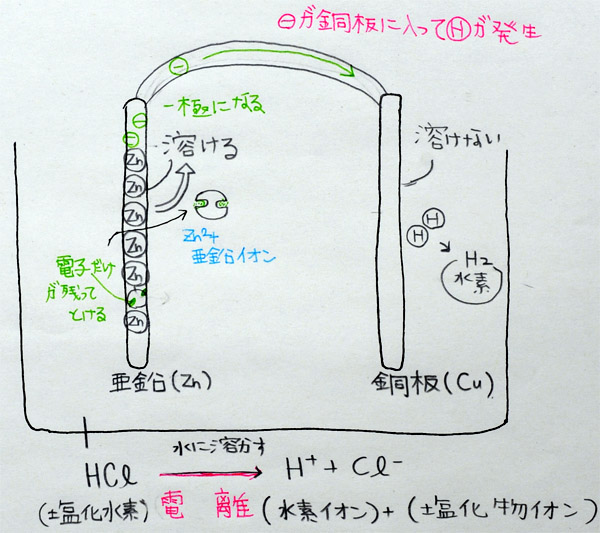 ⊖が銅板に入ってⒽが発生
⊖
一極になる
⊖
⊖
溶ける
溶けない
Zn
Zn
Zn
Zn
Zn
Zn
Zn²⁺
亜鉛イオン
電子だけ
が残って
とける
H
H
H₂
水素
亜鉛(Zn)
銅板(Cu)
水に溶かす
HCl → H⁺ + Cl⁻
(塩化水素) 電離 (水素イオン) + (塩化物イオン)